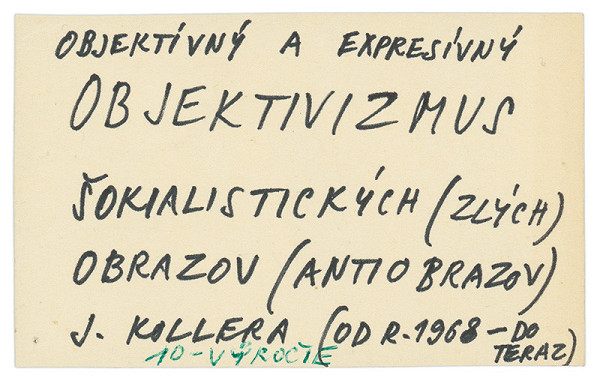 OBJEKTÍVNÝ A EXPRESÍVNÝ
OBJEKTIVIZMUS
ŠOKIALISTICKÝCH (ZLÝCH)
OBRAZOV (ANTIOBRAZOV)
J. KOLLERA (OD R. 1968 – DO TERAZ)
10-VÝROČIE